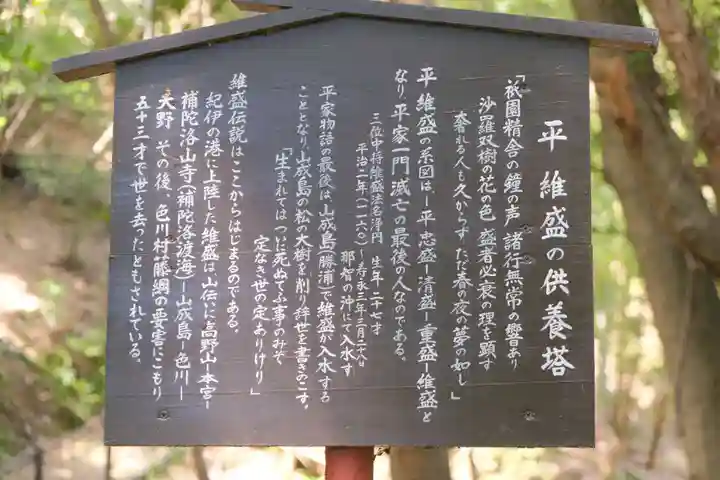 平 維盛の供養塔
「祇園精舎の鐘の声 諸行無常の響あり
沙羅双樹の花の色 盛者必衰の理を顕す
奢れる人も久からず ただ春の夜の夢の如し」
平 維盛の系図は、平 忠盛ー清盛ー重盛ー維盛と
なり、平家一門滅亡の最後の人なのである。
三位中将維盛法名浄円 生年二十七才
平治二年(一一六〇)〜寿永三年三月二八日
那智の沖にて入水す
平家物語の最後は、山成島(勝浦)で維盛が入水する
こととなり、山成島の松の大樹を削り辞世を書きのこす。
「生まれてはつひに死ぬてふ事のみぞ
定なき世の定ありけり」
維盛伝説はここからはじまるのである。
紀伊の港に上陸した維盛は、山伝に高野山ー本宮ー
補陀洛山寺(補陀洛渡海)ー山成島ー色川ー
大野 その後、色川村藤綱の要害にこもり
五十三才で世を去ったともされている。